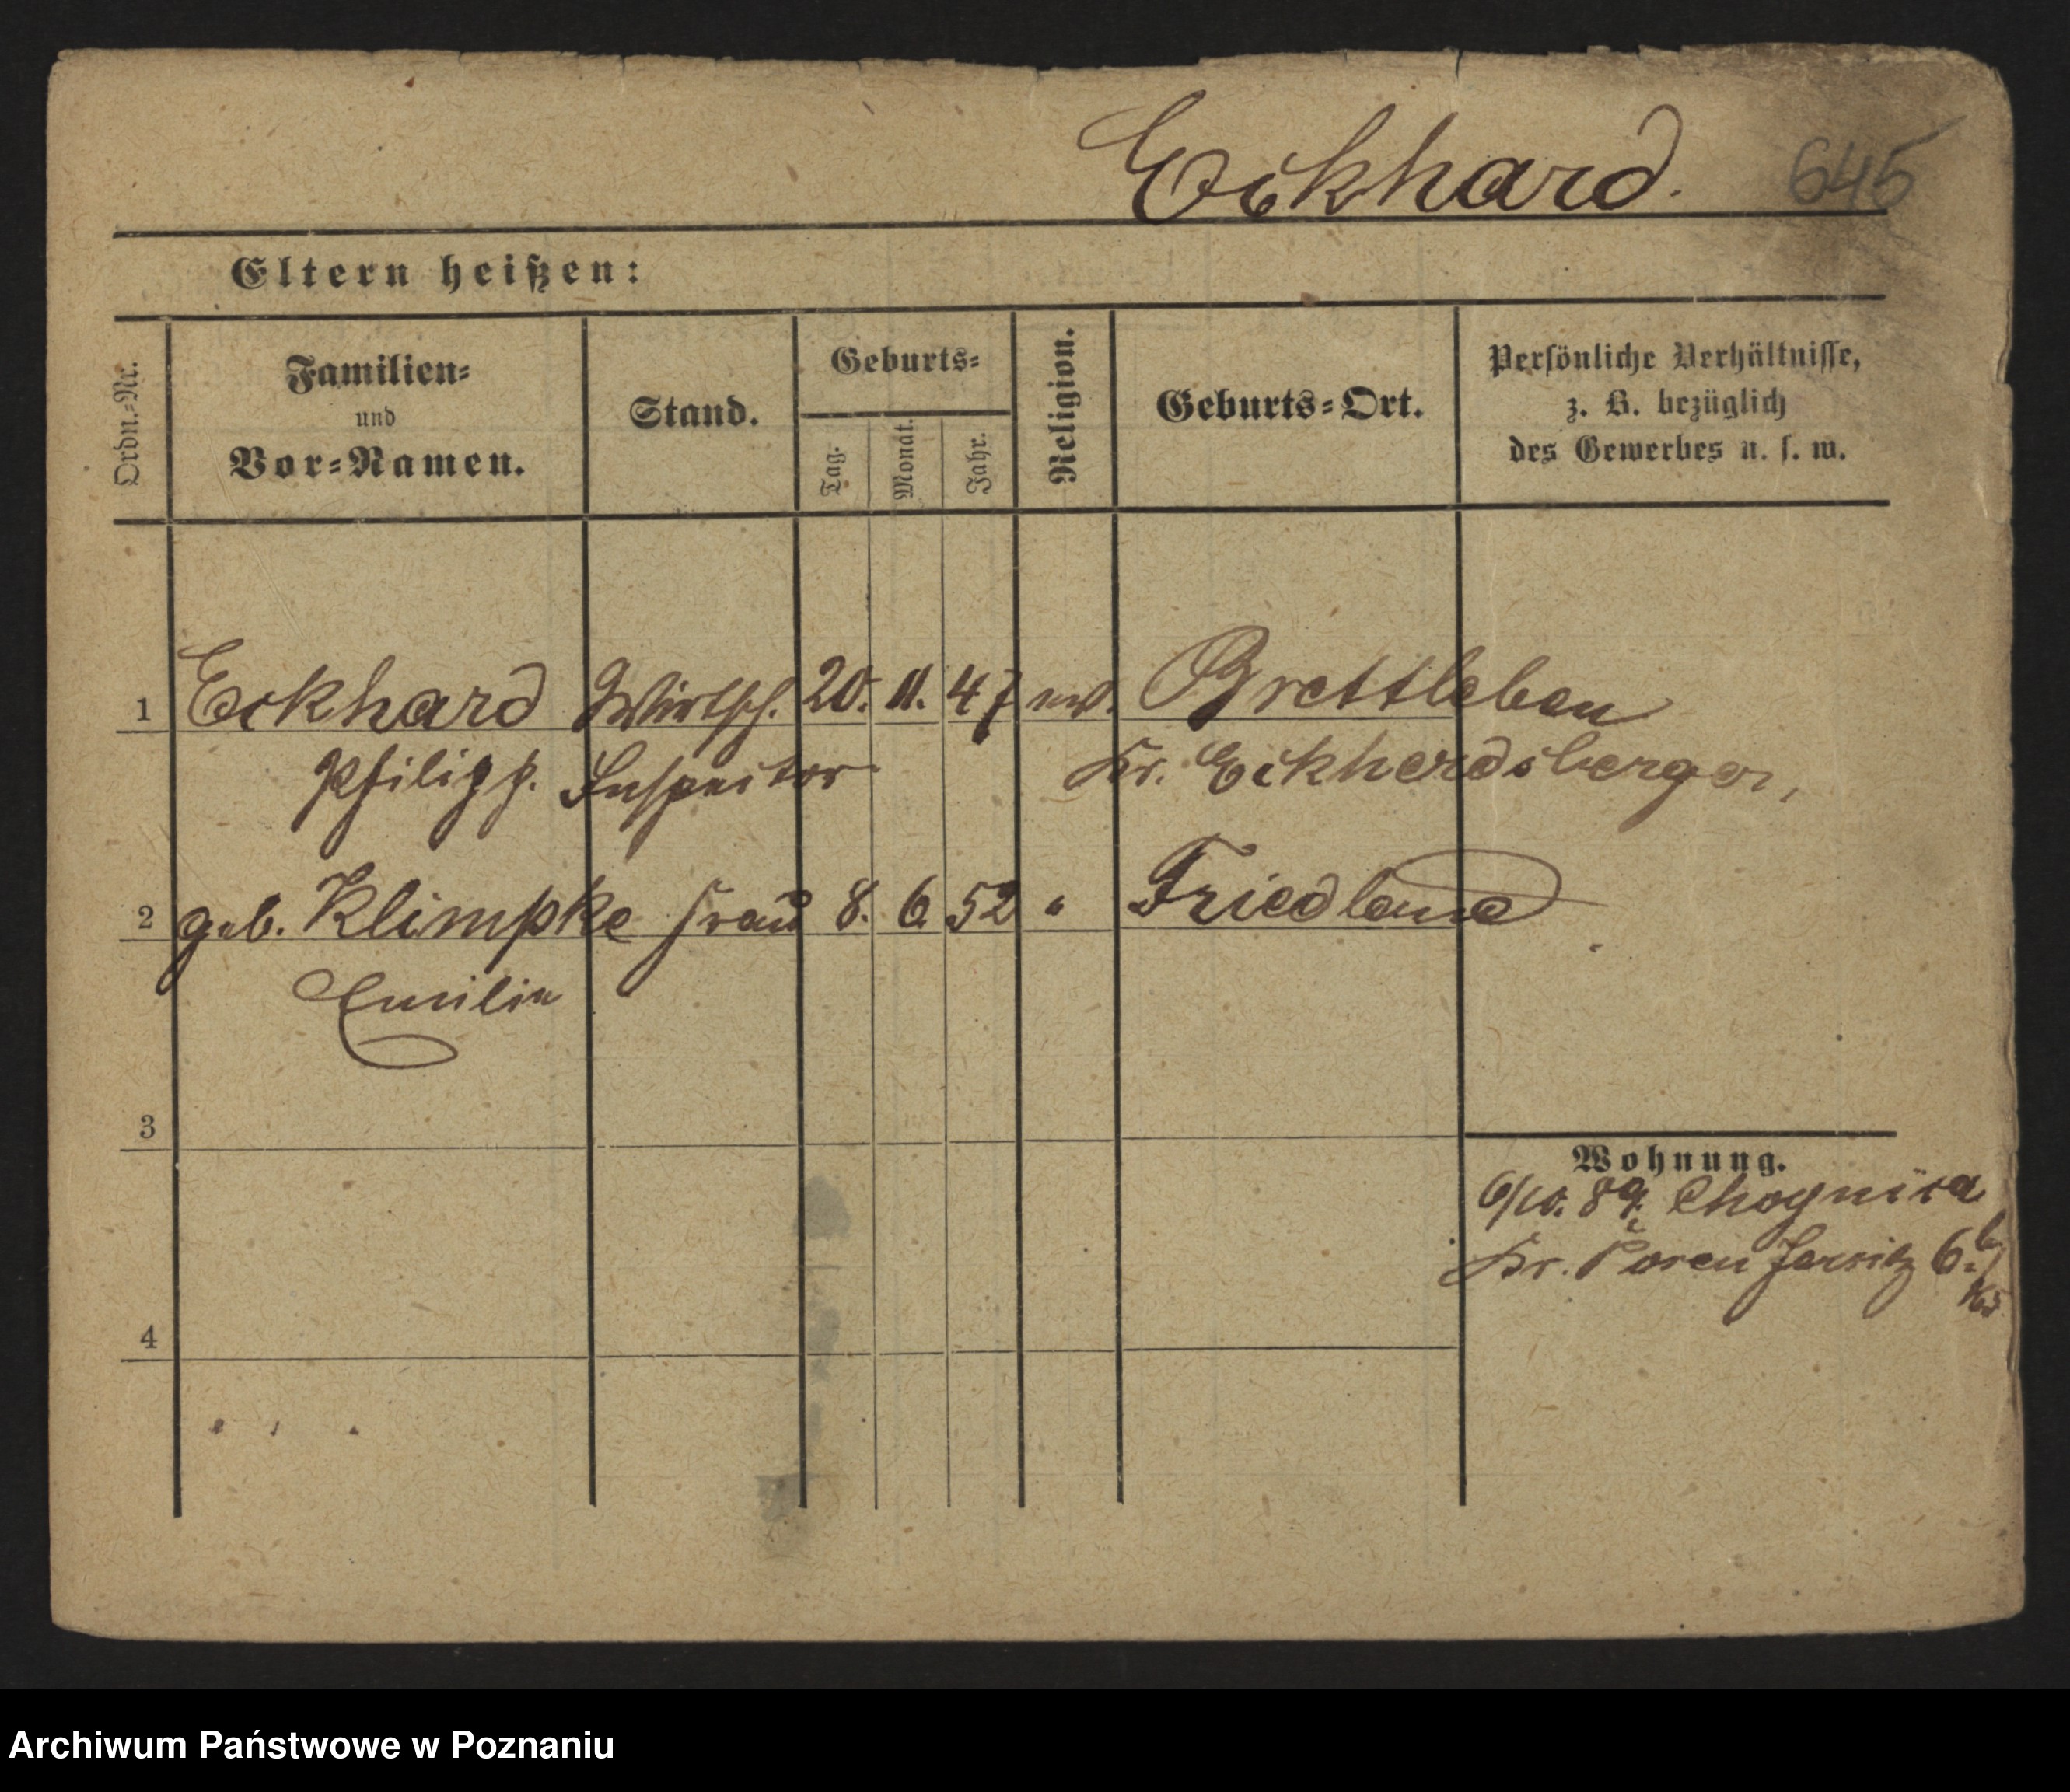 Eckhard. 645
Eltern heißen:
Ordn.-Nr.
Familien-
und
Vor-Namen.
Stand.
Geburts-
Tag.
Monat.
Jahr.
Religion.
Geburts-Ort.
Persönliche Verhältnisse,
z. B. bezüglich
des Gewerbes u. s. w.
1 Eckhard Wirtsch. 20. 11. 47 ev. Brettleben
Philipp. Inspector Kr. Eckhardsberger,
2 geb. Klimpke Frau 8. 6 52 " Friedland
Emilie
3
Wohnung.
6/10. 89. Chognica
Kr. Posen Jersitz 6.
4
Archiwum Państwowe w Poznaniu